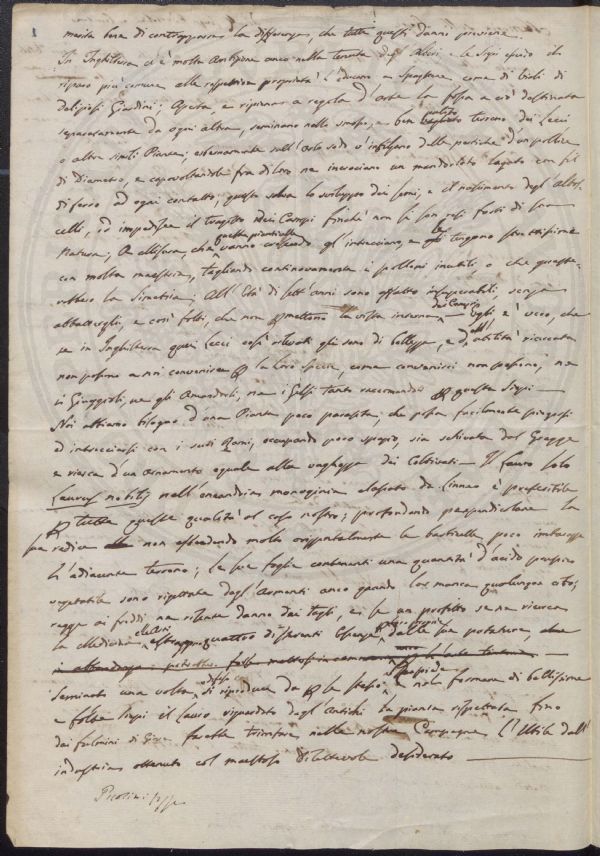 1
merita bene di contrapporre la differenza, che tutti questi danni previene.
In Inghilterra ci è molta Attenzione anco nella tenuta degl'Alberi e le Siepi essendo il
riparo più comune alle rispettive proprietà l'educano e spargono come di viali di
deliziosi Giardini; Aperta, e ripiena a regola d'arte la fossa a ciò destinata
separatamente da ogni altra, seminano nello smosso, e ben pulito terreno dei Lecci
o altre simili Piante; esternamente sull'orlo sodo v'infilzano delle pertiche d'un pollice
di Diametro, e capovoltandole fra di loro ne incrociano un mandorlato legato con fil
di ferro ad ogni contatto; questo salva lo sviluppo dei semi, e il nascimento degl'albos
celli, ed impedisce il tragitto nei Campi finchè non si son resi forti di sua
Natura; A allora, che queste pianticelle vanno crescendo gl'intrecciano, e le tengono strettissime
con molta maestria, tagliando continovamente i polloni inutili o che guaste-
rebbero la Simetria; All'Età di sett'anni sono affatto insuperabili, senza
abbattergli, e così folti, che non permettono la vista interna dei Campi — vogli è vero, che
se in Inghilterra quei Lecci così coltivati gli sono di bellezza, e d'utilità ricercata
non possono a noi convenire per la loro specie, come convenirci non possono, ne
i Giuggioli, ne gli Amandorli, ne i Gelsi tanto raccomandati per queste Siepi —
Noi abbiamo bisogno d'una Pianta poco parassita, che possa facilmente piegarsi
ed intrecciarsi con i suoi Rami, occupando poco spazio, sia schivata dal Gregge
e riesca d'un ornamento eguale alla vaghezza dei Coltivati — Il Lauro solo
Laurus nobilis nell'eneandria monoginia classato da Linneo è preferibile
per tutte queste qualità al caso nostro; profondando perpendicolare la
sua radice non estendendo molto orizzontalmente le barbicelle poco interessa
l'adiacente terreno; le sue foglie contenenti una quantità d'acido prussico
vegetabile sono rigettate dagl'Armenti anco quando lor manca qualunque cibo;
regge ai freddi ne risente danno dai tagli, e se un profitto se ne ricerca
la Medicina
Seminato una volta, si riproduce da per se stesso, e nel formare di bellissime
e folte siepi il Lauro riguardato dagl'Antichi la pianta rispettata fino
dai fulmini di Giove farebbe trionfare nelle nostre Campagne l'Utile dall'
industria ottenuto col maestoso dilettevole desiderato —